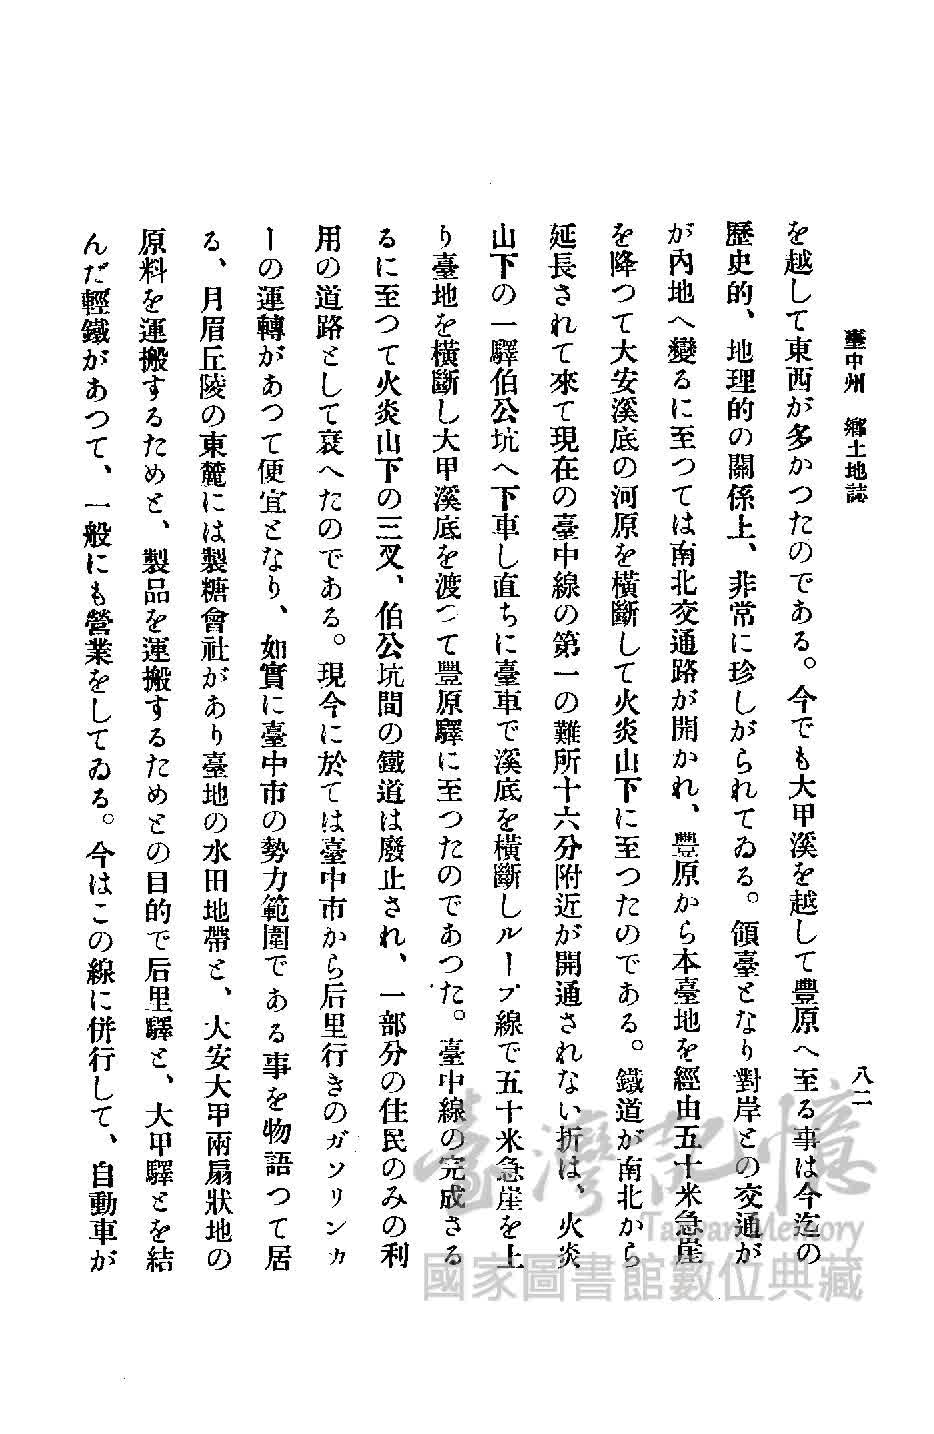 臺中州 鄕土地誌
八二
を越して東西が多かつたのである。今でも大甲溪を越して豐原へ至る事は今迄の
歷史的、地理的の關係上、非常に珍しがられてゐる。領臺となり對岸との交通が
が內地へ變るに至つては南北交通路が開かれ、豐原から本臺地を經由五十米急崖
を降つて大安溪底の河原を橫斷して火炎山下に至つたのである。鐵道が南北から
延長されて來て現在の臺中線の第一の難所十六分附近が開通されない折は、火炎
山下の一驛伯公坑へ下車し直ちに臺車で溪底を橫斷しループ線で五十米急崖を上
り臺地を橫斷し大甲溪底を渡つて豐原驛に至つたのであつた。臺中線の完成さる
るに至つて火炎山下の三叉、伯公坑間の鐵道は廢止され、一部分の住民のみの利
用の道路として衰へたのである。現今に於ては臺中市から后里行きのガソリンカ
ーの運轉があつて便宜となり、如實に臺中市の勢力範圍である事を物語つて居
る、月眉丘陵の東麓には製糖會社があり臺地の水田地帶と、大安大甲兩扇狀地の
原料を運搬するためと、製品を運搬するためとの目的で后里驛と、大甲驛とを結
んだ輕鐵があつて、一般にも營業をしてゐる。今はこの線に併行して、自動車が
臺灣記憶
Taiwan Memory
國家圖書館數位典藏